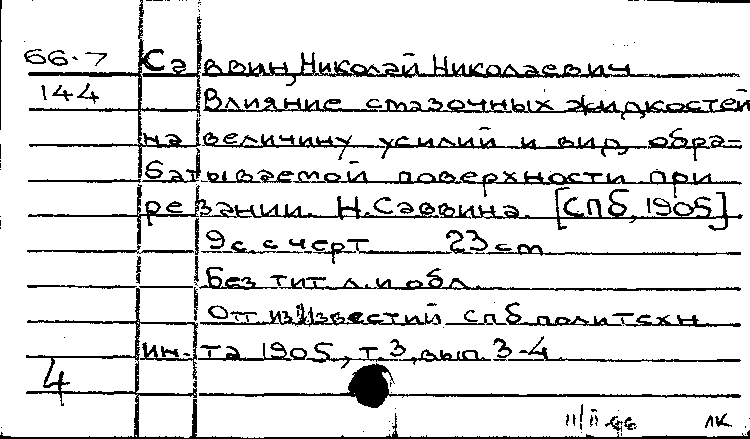 66-7 Саввин, Николай Николаевич
144 Влияние смазочных жидкостей
на величину усилий и вид обра-
батываемой поверхности при
резании. Н. Саввина. [СПб, 1905].
9 с. с черт. 23 cm
Без тит. л. и обл.
Отт. из Известий спб. политехн.
ин-та 1905, т. 3, вып. 3-4
4
11/II-66 ЛК